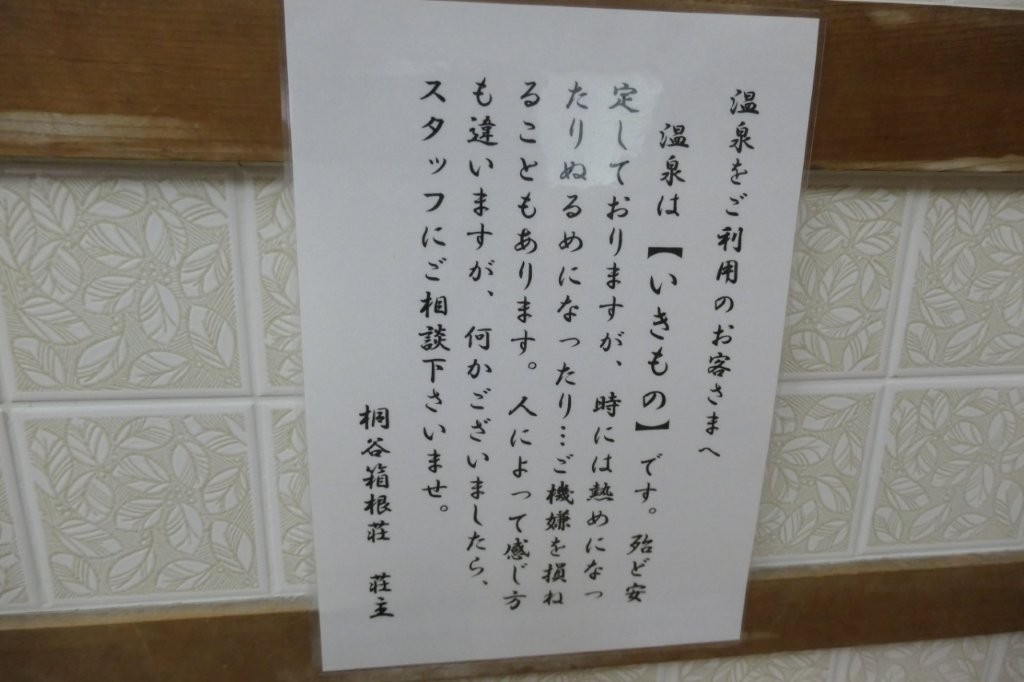 温泉をご利用のお客さまへ
温泉は【いきもの】です。殆ど安
定しておりますが、時には熱めになっ
たりぬるめになったり…ご機嫌を損ね
ることもあります。人によって感じ方
も違いますが、何かございましたら、
スタッフにご相談下さいませ。
桐谷箱根荘　荘主